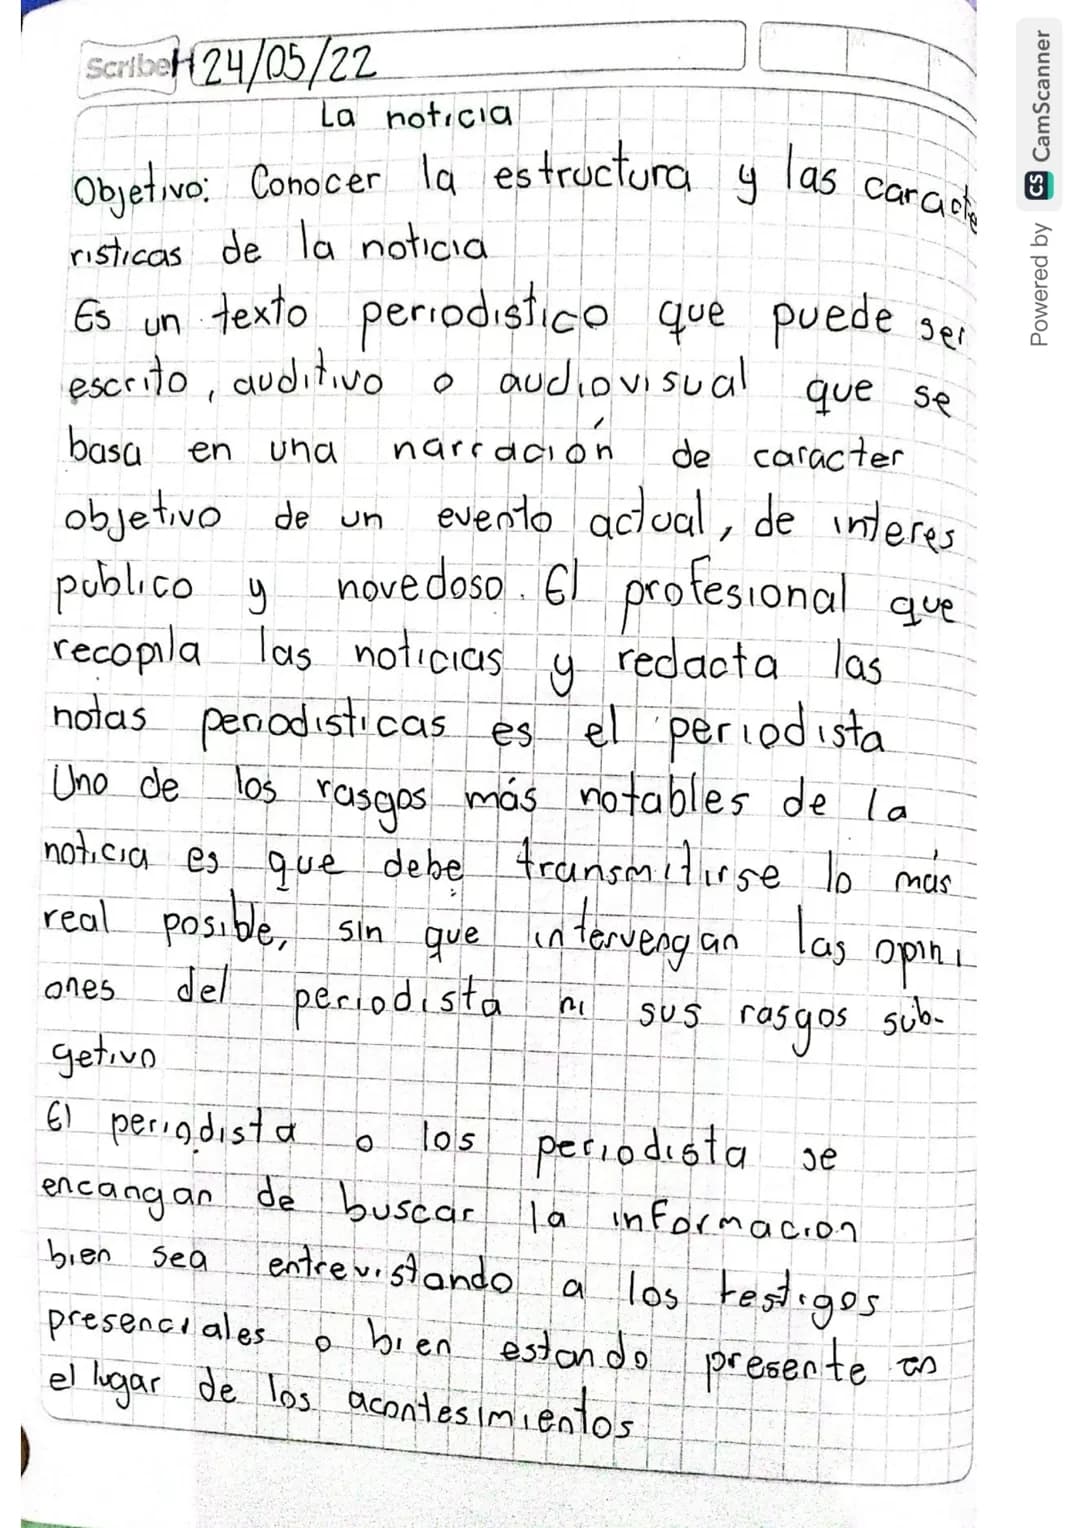 Scribe H 24/05/22
La noticia
Objetivo: Conocer la estructura y las caracte
risticas de la noticia
Es un texto periodistico que puede ser
escrito, auditivo o audiovisual que se
basa en una narración de caracter
objetivo de un evento actual, de interes
publico y novedoso. El profesional que
recopila las noticias y redacta las
notas periodisticas es el periodista
Uno de los rasgos más notables de la
noticia es que debe transmitirse lo más
real posible, sin que intervengan las opini
ones del periodista ni sus rasgos sub-
getivo
El periodista o los periodista se
encangan de buscar la informacion
bien sea entrevistando a los testigos
presenciales o bien estando presente en
el lugar de los acontesimientos
Powered by CS CamScanner